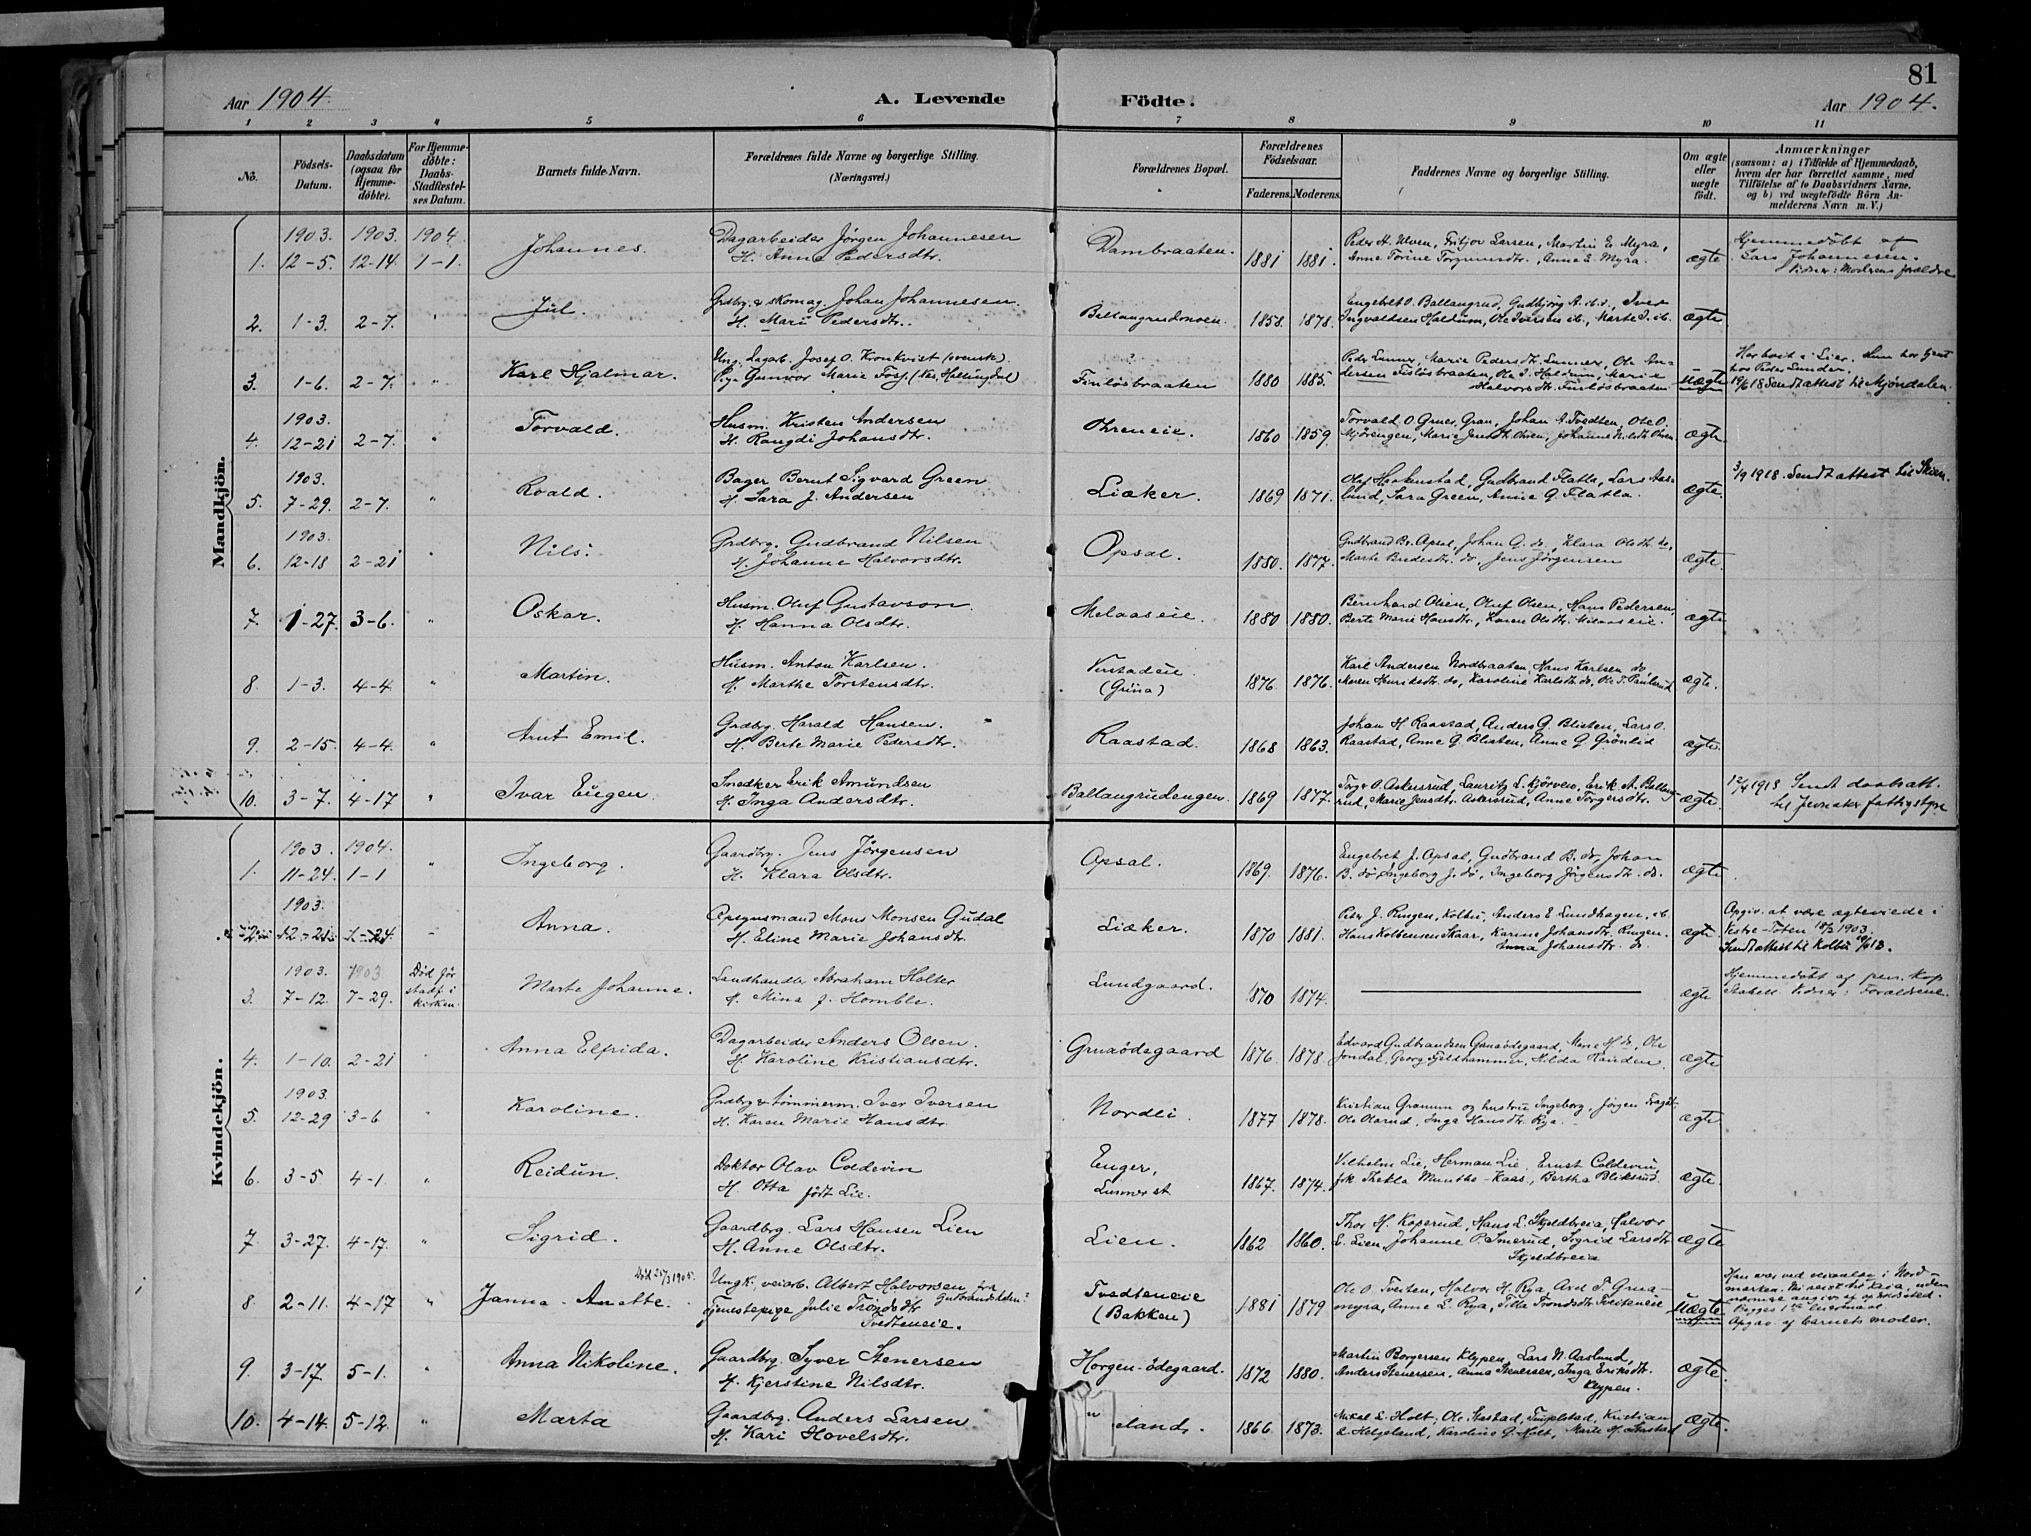 81
Aar 1904. A. Levende Födte. Aar 1904.
1 2 3 4 5 6 7 8 9 10 11
No. Födsels-Datum. Daabsdatum (ogsaa for Hjemme-döbte). For Hjemme-döbte: Daabs-Stadfæstel-ses Datum. Barnets fulde Navn. Forældrenes fulde Navne og borgerlige Stilling. (Næringsvei.) Forældrenes Bopæl. Forældrenes Födselsaar. Faderens. Moderens. Faddernes Navne og borgerlige Stilling. Om ægte eller uægte födt. Anmærkninger (saasom: a) i Tilfælde af Hjemmedaab, hvem der har forrettet samme, med Tilföielse af to Daabsvidners Navne, og b) ved uægtefödte Börn An-melderens Navn m. V.)
Mandkjön.
1903. 1903. 1904. Dagarbeider Jørgen Johannesen Peder H. Ulven, Fritjov Larsen, Martin E. Myra, Hjemmedøbt af
1. 12-5. 12-14 1-1. Johannes. H. Anna Pedersdtr. Dambraaten. 1881 1881. Anne Torine, Anne E. Myra. ægte Lars Johannesen.
Vidner: Moderens forældre
Grdbrg. & skomag. Johan Johannesen. Engebret O. Ballangrud, Gudbjørg A. ib. d., Iver
2. 1-3. 2-7. " Jul. H. Mari Pedersdtr. 1858. 1878. Ingvaldsen Haldum, Ole Iversen ib., Marte I. ib. ægte
Ung. dagarb. Josef O. Kronkvist (svensk). Peder Lunner, Marie Pedersdtr. Lunner, Ole An- Har boet i Lier. Hun har tjent
3. 1-6. 2-7. " Karl Hjalmar. Pige Gunvor Marie Tosf. (Nes, Hallingdal) Finlösbraaten 1880 1885. dersen Finlösbraaten, Ole I. Haldum, Marie uægte hos Peder Lunder.
Halvorsdtr. Finlösbraaten 19/6 18 Sendt attest til Mjøndalen.
1903. Husm. Kristen Andersen Torvald O. Gran, Johan A. Tvedten, Ole O.
4. 12-21 2-7. " Torvald. H. Rangdi Johansdtr. Ohreneie. 1860 1859. Mjørengen, Marie Jensdt. Ohren, Johanne Nilsdt. Ohren ægte
1903. Bager Bernt Sigvard Green Olaf Haakenstad, Gudbrand Flatla, Lars Aas- 3/9 1918. Sendt attest til Skien.
5. 7-29. 2-7. " Roald. H. Sara J. Andersen Liæker. 1869 1871. lund, Sara Green, Anne G. Flatla. ægte
1903. Grdbrg. Gudbrand Nilsen Gudbrand Br. Opsal, Johan G. do, Klara Olsdtr. do,
6. 12-18 2-21 " Nils. H. Johanne Halvorsdtr. Opsal. 1880. 1877. Marte Bredesdtr. do, Jens Jörgensen ægte.
Husm. Oluf Gustavson. Bernhard Olsen, Oluf Olsen, Hans Pedersen,
7. 1-27. 3-6. " Oskar. H. Hanna Olsdtr. Melaaseie. 1880 1880. Berte Marie Hansdtr., Karen Olsdtr. Melaaseie. ægte
Husm. Anton Karlsen. Karl Andersen Nordbraaten, Hans Karlsen do,
8. 1-3. 4-4 " Martin. H. Marthe Torstensdtr. (Grua) 1876. 1876. Maren Henriksdtr. do, Karoline Karlsdtr. do, Ole T. Paulsrud ægte.
Grdbrg. Harald Hansen. Johan H. Raastad, Anders G. Blisten, Lars O.
9. 2-15. 4-4. " Arnt Emil. H. Berte Marie Pedersdtr. Raastad. 1868 1863. Raastad, Anne G. Blisten, Anne G. Grönlid ægte.
Snedker Erik Amundsen 12/4 1918 Sendt daabsatt.
10. 3-7. 4-17 " Ivar Eugen. H. Inga Andersdtr. Ballangrudengen. 1869 1877. rud, Marie Jensdtr. Askersrud, Anne Torgersdtr. ægte. til Jevnaker fattigstyre
Kvindekjön.
1903. 1904. Gaardbrg. Jens Jörgensen Engebret J. Opsal, Gudbrand B. do, Johan
1. 11-24. 1-1 " Ingeborg. H. Klara Olsdtr. Opsal. 1869. 1876. B. do, Ingeborg J. do, Ingeborg Jörgensdtr. do. ægte
1903. Opsynsmand Mons Monsen Gudal Peder J. Ringen, Kolbu, Anders E. Lundhagen, ib. Opgiv. at være ægteviede i
2. 12-21 1-24. Anna. H. Eline Marie Johansdtr. Liæker. 1870 1881. Hans Kolbensen Skaar, Karine Johansdtr. Ringen. ægte Vestre-Toten 1903.
Anna Johansdtr. do. Sendt attest til Kolbu
1903. 1903 Död før Landhandler Abraham Holter Hjemmedøbt af pers. kap.
3. 7-12. 7-29. stadf. i kirken. Marte Johanne. H. Mina J. Homble. Lundgaard. 1870 1874. ægte Vidner: Forældrene.
Dagarbeider Anders Olsen. Edvard Gudbrandsen Gruaödegaard, Marie H. do, Ole
4. 1-10. 2-21 Anna Elfrida. H. Karoline Kristiansdtr. Gruaödegaard 1876. 1878. Jondal, Georg Fjeldhammer, Hilda ægte
1903. Grdbrg & tömmerm. Iver Iversen Kristian Granum og hustru Ingeborg, Jörgen
5. 12-29 3-6 Karoline. H. Karen Marie Hansdtr. Nordli 1877 1878. Ole Olarud, Inga Hansdtr. Rya. ægte
Doktor Olav Coldevin Enger, Vilhelm Lie, Herman Lie, Ernst Coldevin,
6. 3-5 4-1. " Reidun. H. Otta født Lie. Lunner st 1867. 1874. frk. Thekla Munthe-Kaas, Bertha Bliksrud. ægte.
Gaardbrg. Lars Hansen Lien Thor H. Koperud, Hans L. Skjeldbreia, Halvor
7. 3-27. 4-17. " Sigrid. H. Anne Olsdtr. Lien. 1862 1860. L. Lien, Johanne P. Smerud, Sigrid Larsdtr. ægte
Skjeldbreia
Död 25/3 1905. Ungk. veiarb. Albert Halvorsen fra Gudbrandsdalen Ole O. Tveiten, Halvor H. Rya, Axel T. Grua- Han var ved i Nord-
8. 2-11. 4-17 " Janna Anette. Tjenestepige Julie Trondsdtr Tvedteneie. Tvedteneie (Bakken) 1881 1879 myra, Anne L. Rya, Tilla Trondsdtr. Tveiteneie uægte marken.
Begges 1ste leiermaal.
Opgav. af barnets moder.
Gaardbrg. Syver Stenersen Martin Borgersen Klypen, Lars N. Aaslund,
9. 3-17. 5-1. " Anna Nikoline. H. Kjerstine Nilsdtr. Horgen-ödegaard. 1872 1880. Anders Stenersen, Anna Stenersen, Inga Eriksdtr. ægte.
Klypen.
Gaardbrg. Anders Larsen Mikal L. Holt, Ole Stastad, Kristian
10. 4-14. 5-12. " Marta H. Kari Hovelsdtr. eland. 1866 1873. L. Helgeland, Karoline G. Holt, Marte M. Stastad ægte.